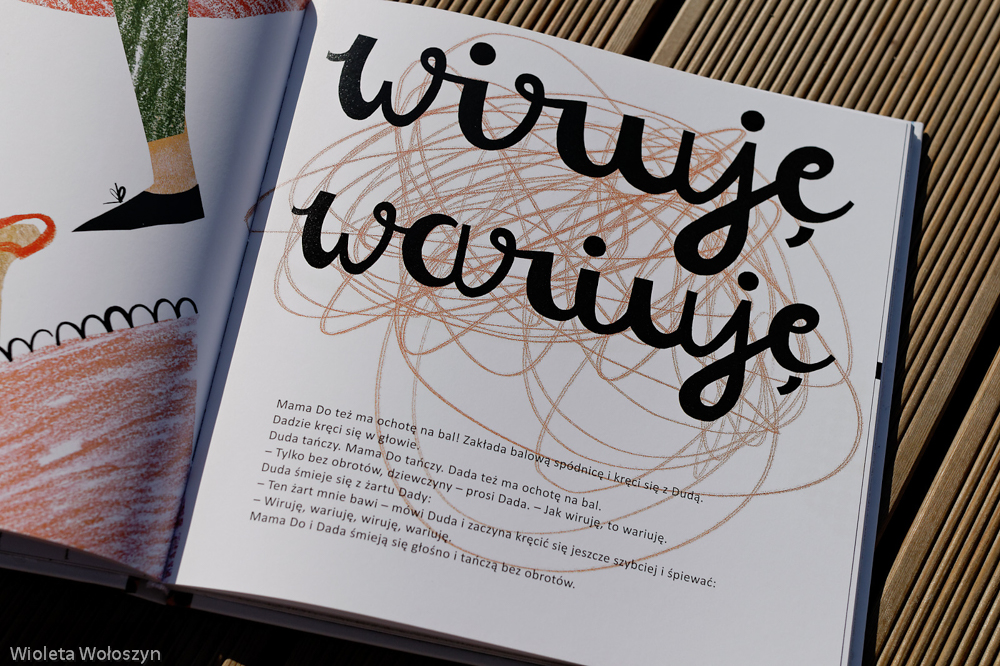 wiruję
wariuję
Mama Do też ma ochotę na bal! Zakłada balową spódnicę i kręci się z Dudą.
Dadzie kręci się w głowie.
Duda tańczy. Mama Do tańczy. Dada też ma ochotę na bal.
– Tylko bez obrotów, dziewczyny – prosi Dada. – Jak wiruję, to wariuję.
Duda śmieje się z żartu Dady:
– Ten żart mnie bawi – mówi Duda i zaczyna kręcić się jeszcze szybciej i śpiewać:
– Wiruję, wariuję, wiruję, wariuję.
Mama Do i Dada śmieją się głośno i tańczą bez obrotów.
Wioleta Wołoszyn